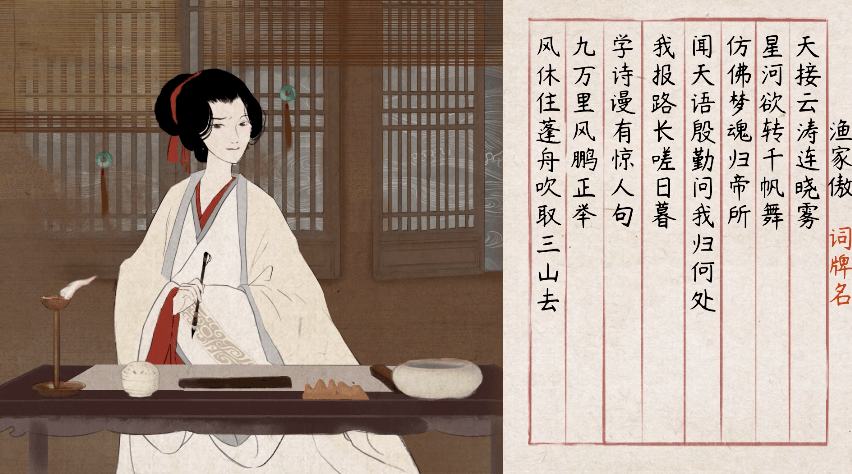 渔家傲
词牌名
天接云涛连晓雾
星河欲转千帆舞
仿佛梦魂归帝所
闻天语殷勤问我归何处
我报路长嗟日暮
学诗谩有惊人句
九万里风鹏正举
风休住蓬舟吹取三山去